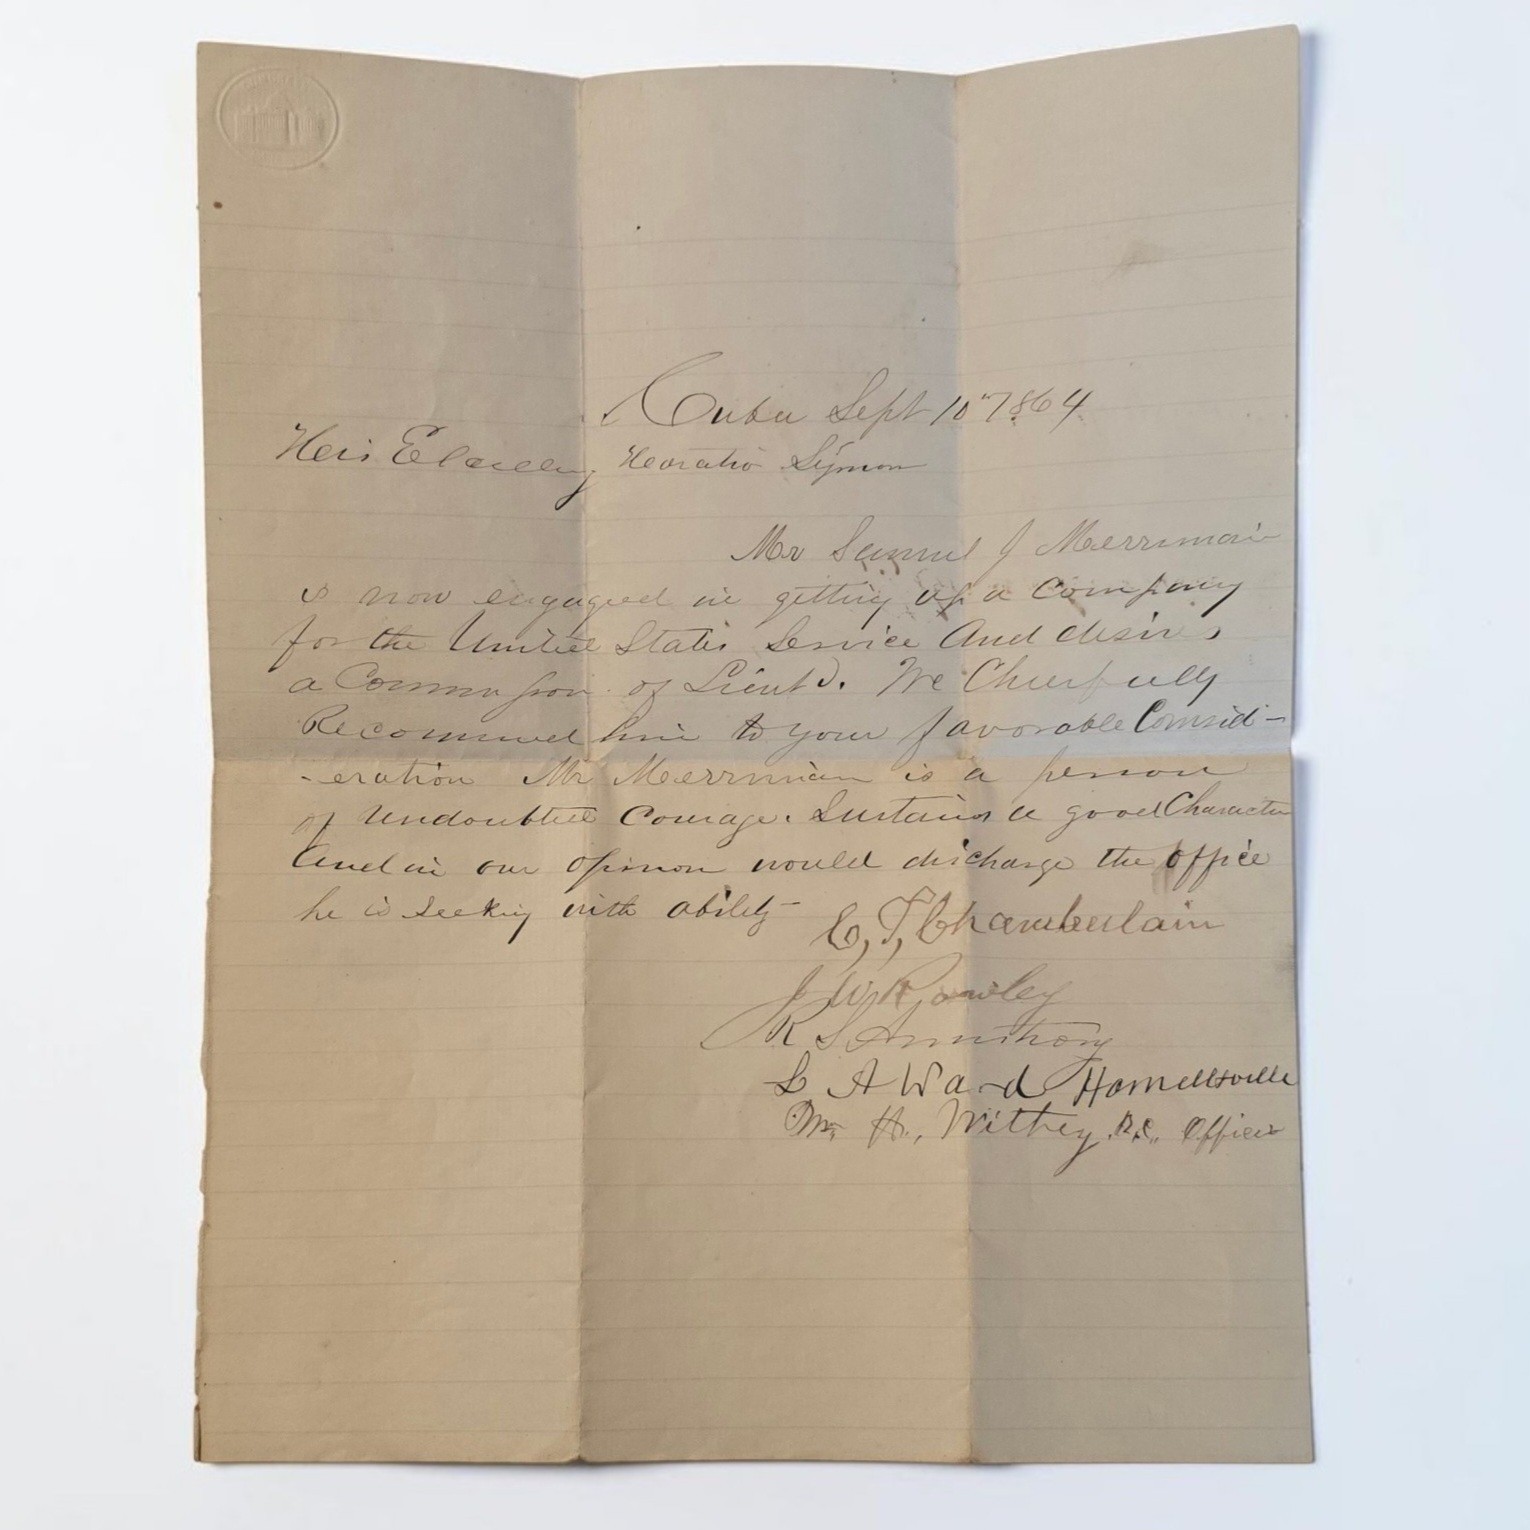 Cuba Sept 10" 1864
His Exelleny Horatio Symon
Mr Samuel J Merriman
is now engaged in getting up a Company
for the United States Service And desires
a Commission of Lieut. We Cheerfully
Recommed him to your favorable Consid-
-eration Mr Merriman is a person
of undoubted Courage. Sustains a good Character
And in our opinion would discharge the office
he is seeking with ability-
C, T, Chamberlain
J W Rowley
R S Armstrong
L A Ward Hornellsville
Wm H, Withey, R.C. Officer